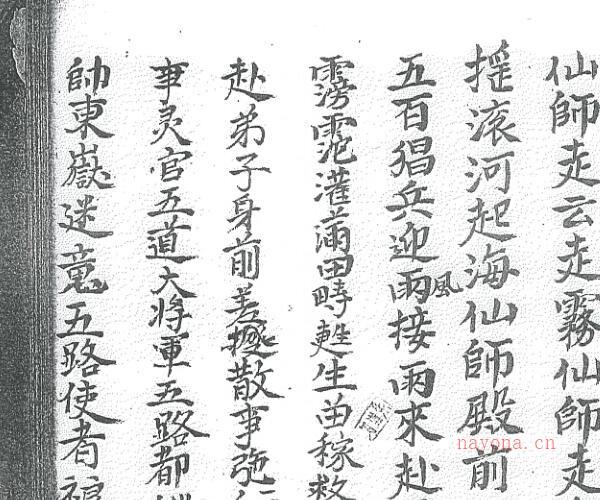 仙師走云走霧仙師走
摇滚河起海仙師殿前
五百猖兵迎雨風接雨來赴
雱霑灌滿田畴甦生苗稼救
赴弟子身前善撥散事弛
事灵官五道大将軍五路都
帥東嶽迷竟五路使者
nayona.cn